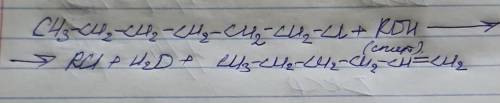 CH₃-CH₂-CH₂-CH₂-CH₂-CH₂-Cl + KOH ⟶
(спирт)
⟶ KCl + H₂O + CH₃-CH₂-CH₂-CH₂-CH=CH₂